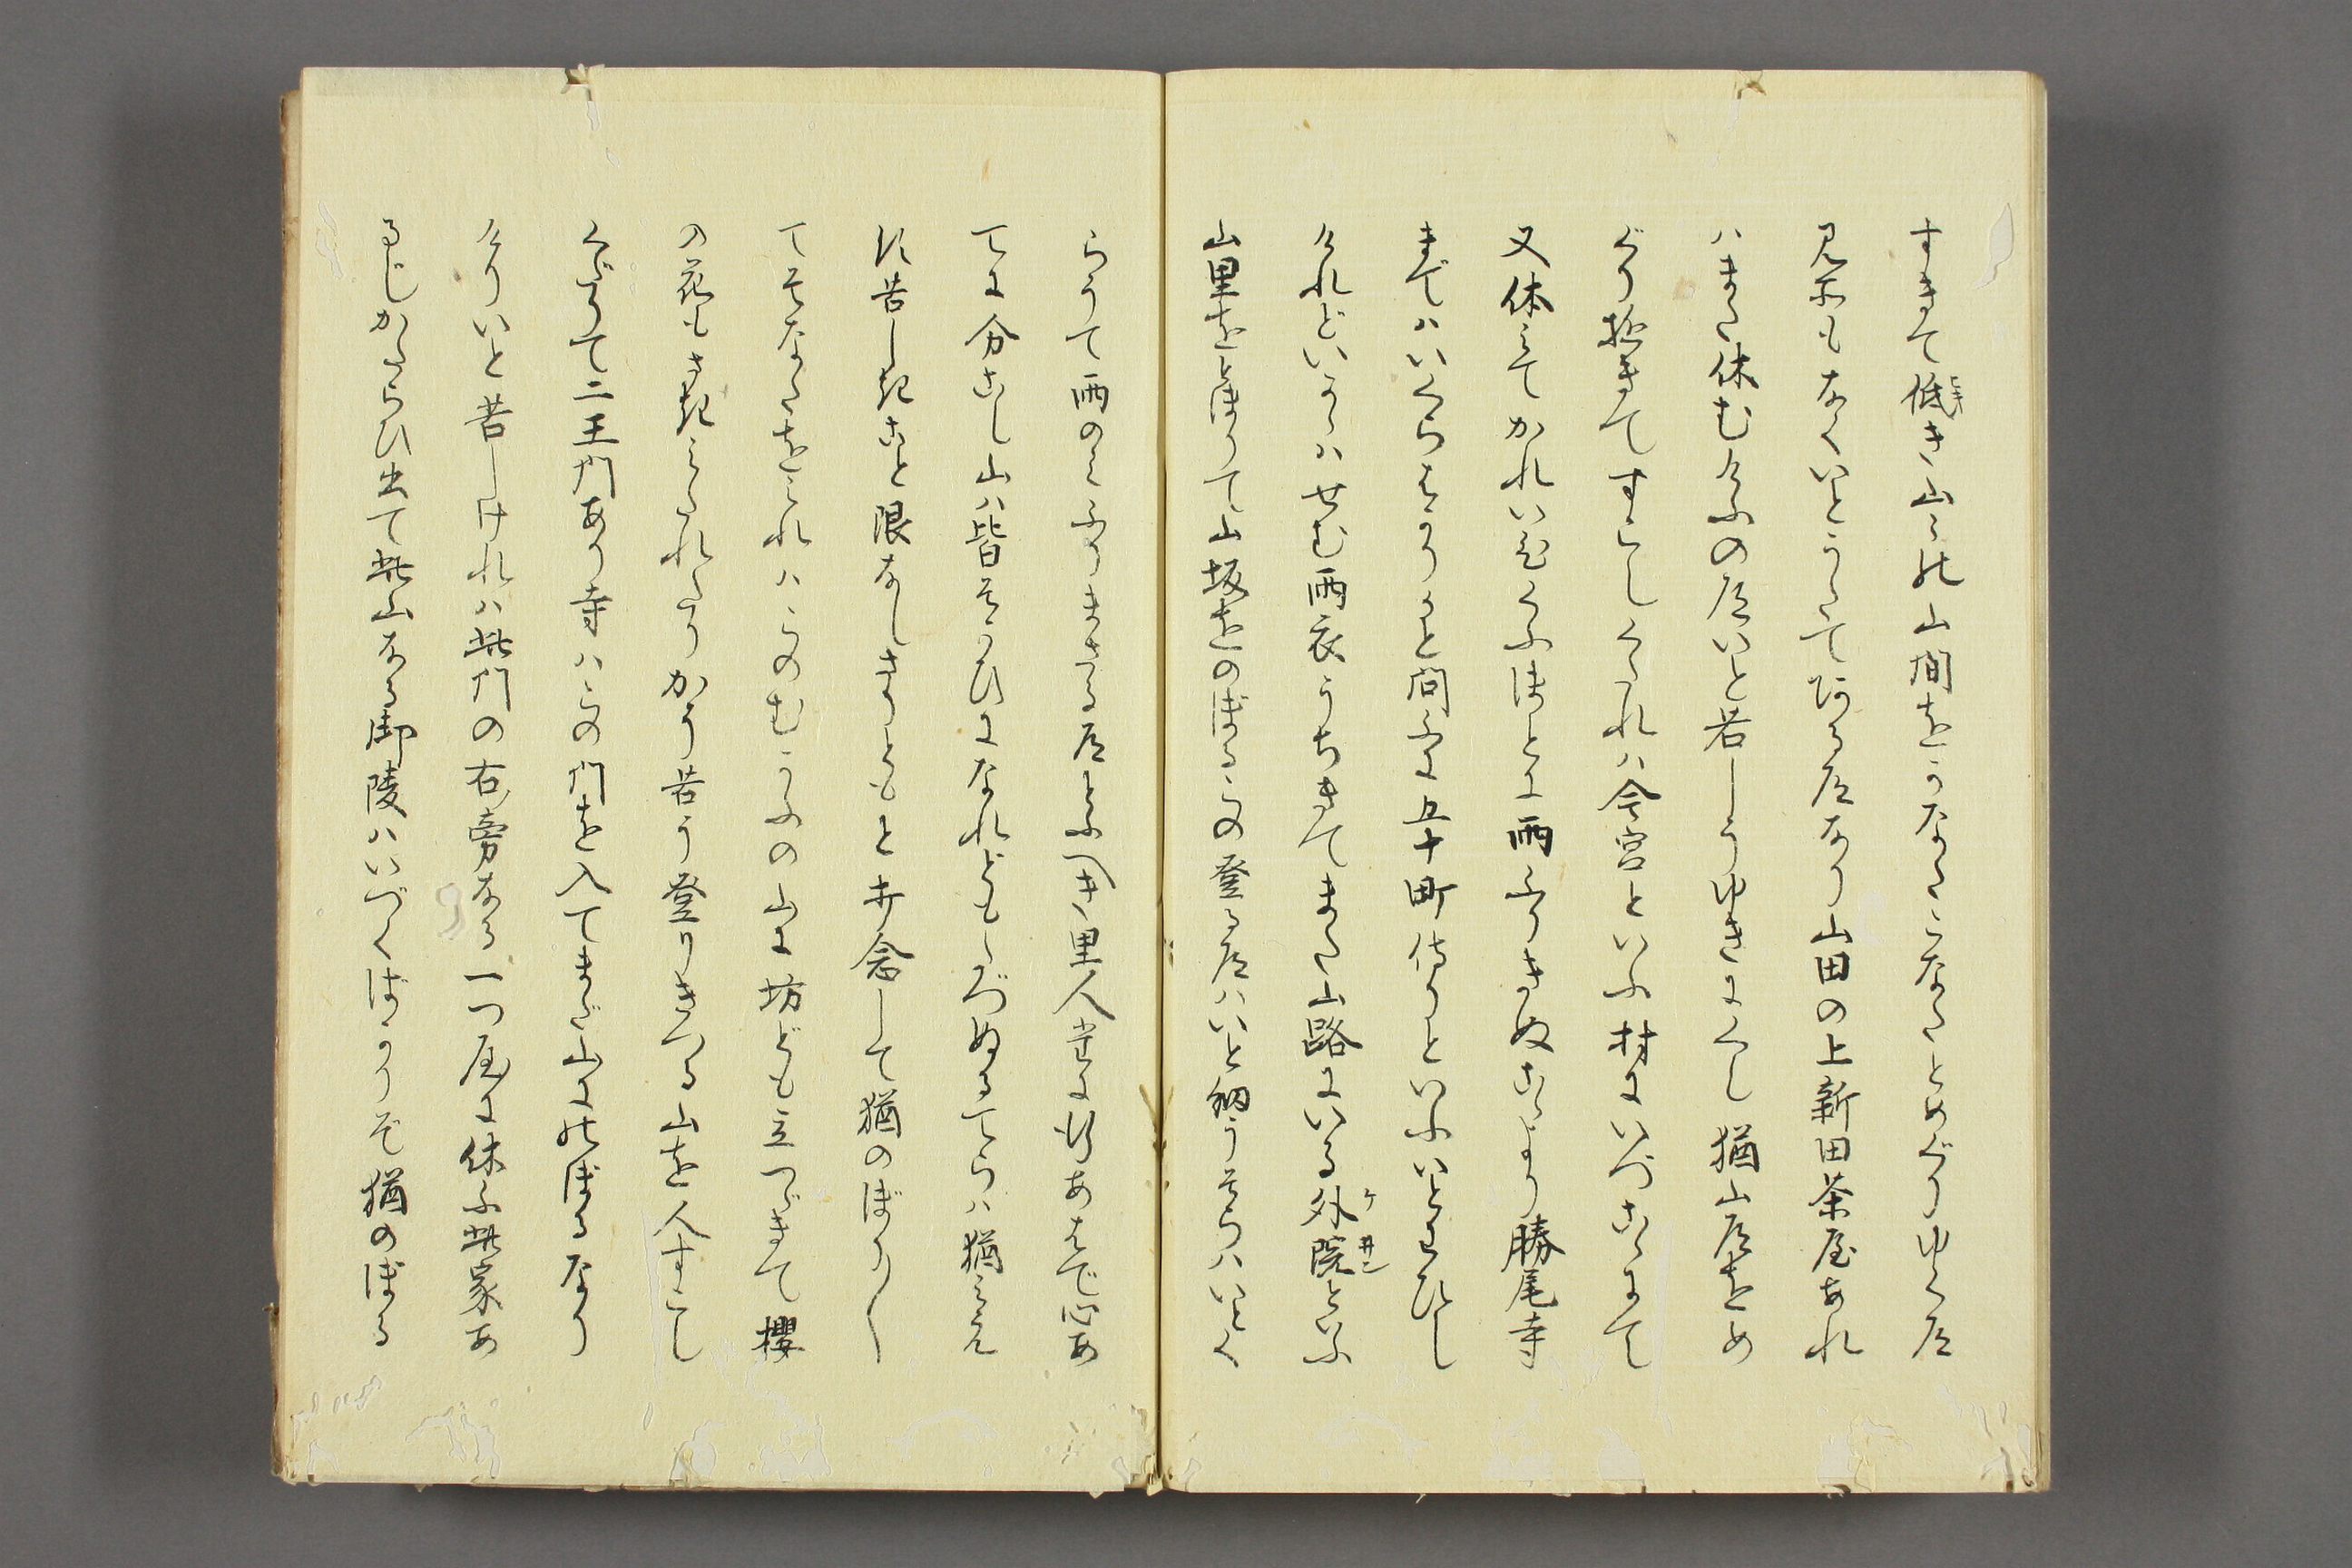 すきて低き山々の山間をかなたこなたとめぐりゆく道
見所もなくいとうたてある道なり山田の上新田茶屋あれ
ハまた休むけふの道いと苦しうゆきまくし猶山道をめ
ぐり極きてすこしくたれハ今宮といふ村にいづこゝにて
又休みてかれいひくふほとに雨ふりきぬこゝより勝尾寺
まではいくらはかりかと問ふに五十町侍りといふいとわひし
けれどいかゝハせむ雨衣うちきてまた山路にいる外院といふ
山里をとほりて山坂をのぼるこの登る道ハいと細うそらハいとく
らうて雨のみふりまさる道とふへき里人たにあはで心あ
てに分こし山ハ皆そかひになれどもしづぬるてらハ猶みえ
す苦しきこと限なしきりともと念して猶のぼり〱
てそなたをみれハこのむかふの山に坊ども立つゞきて櫻
の花もさきみたれたりかう苦う登りきつる山を人すこし
くだりて二王門あり寺ハこの門を入てまだ山にのぼるなり
けりいと苦しけれハ此門の右旁なる一つ屋に休ふ此家あ
るじかたらひ出て此山なる御陵ハいづくばかりぞ猶のぼる